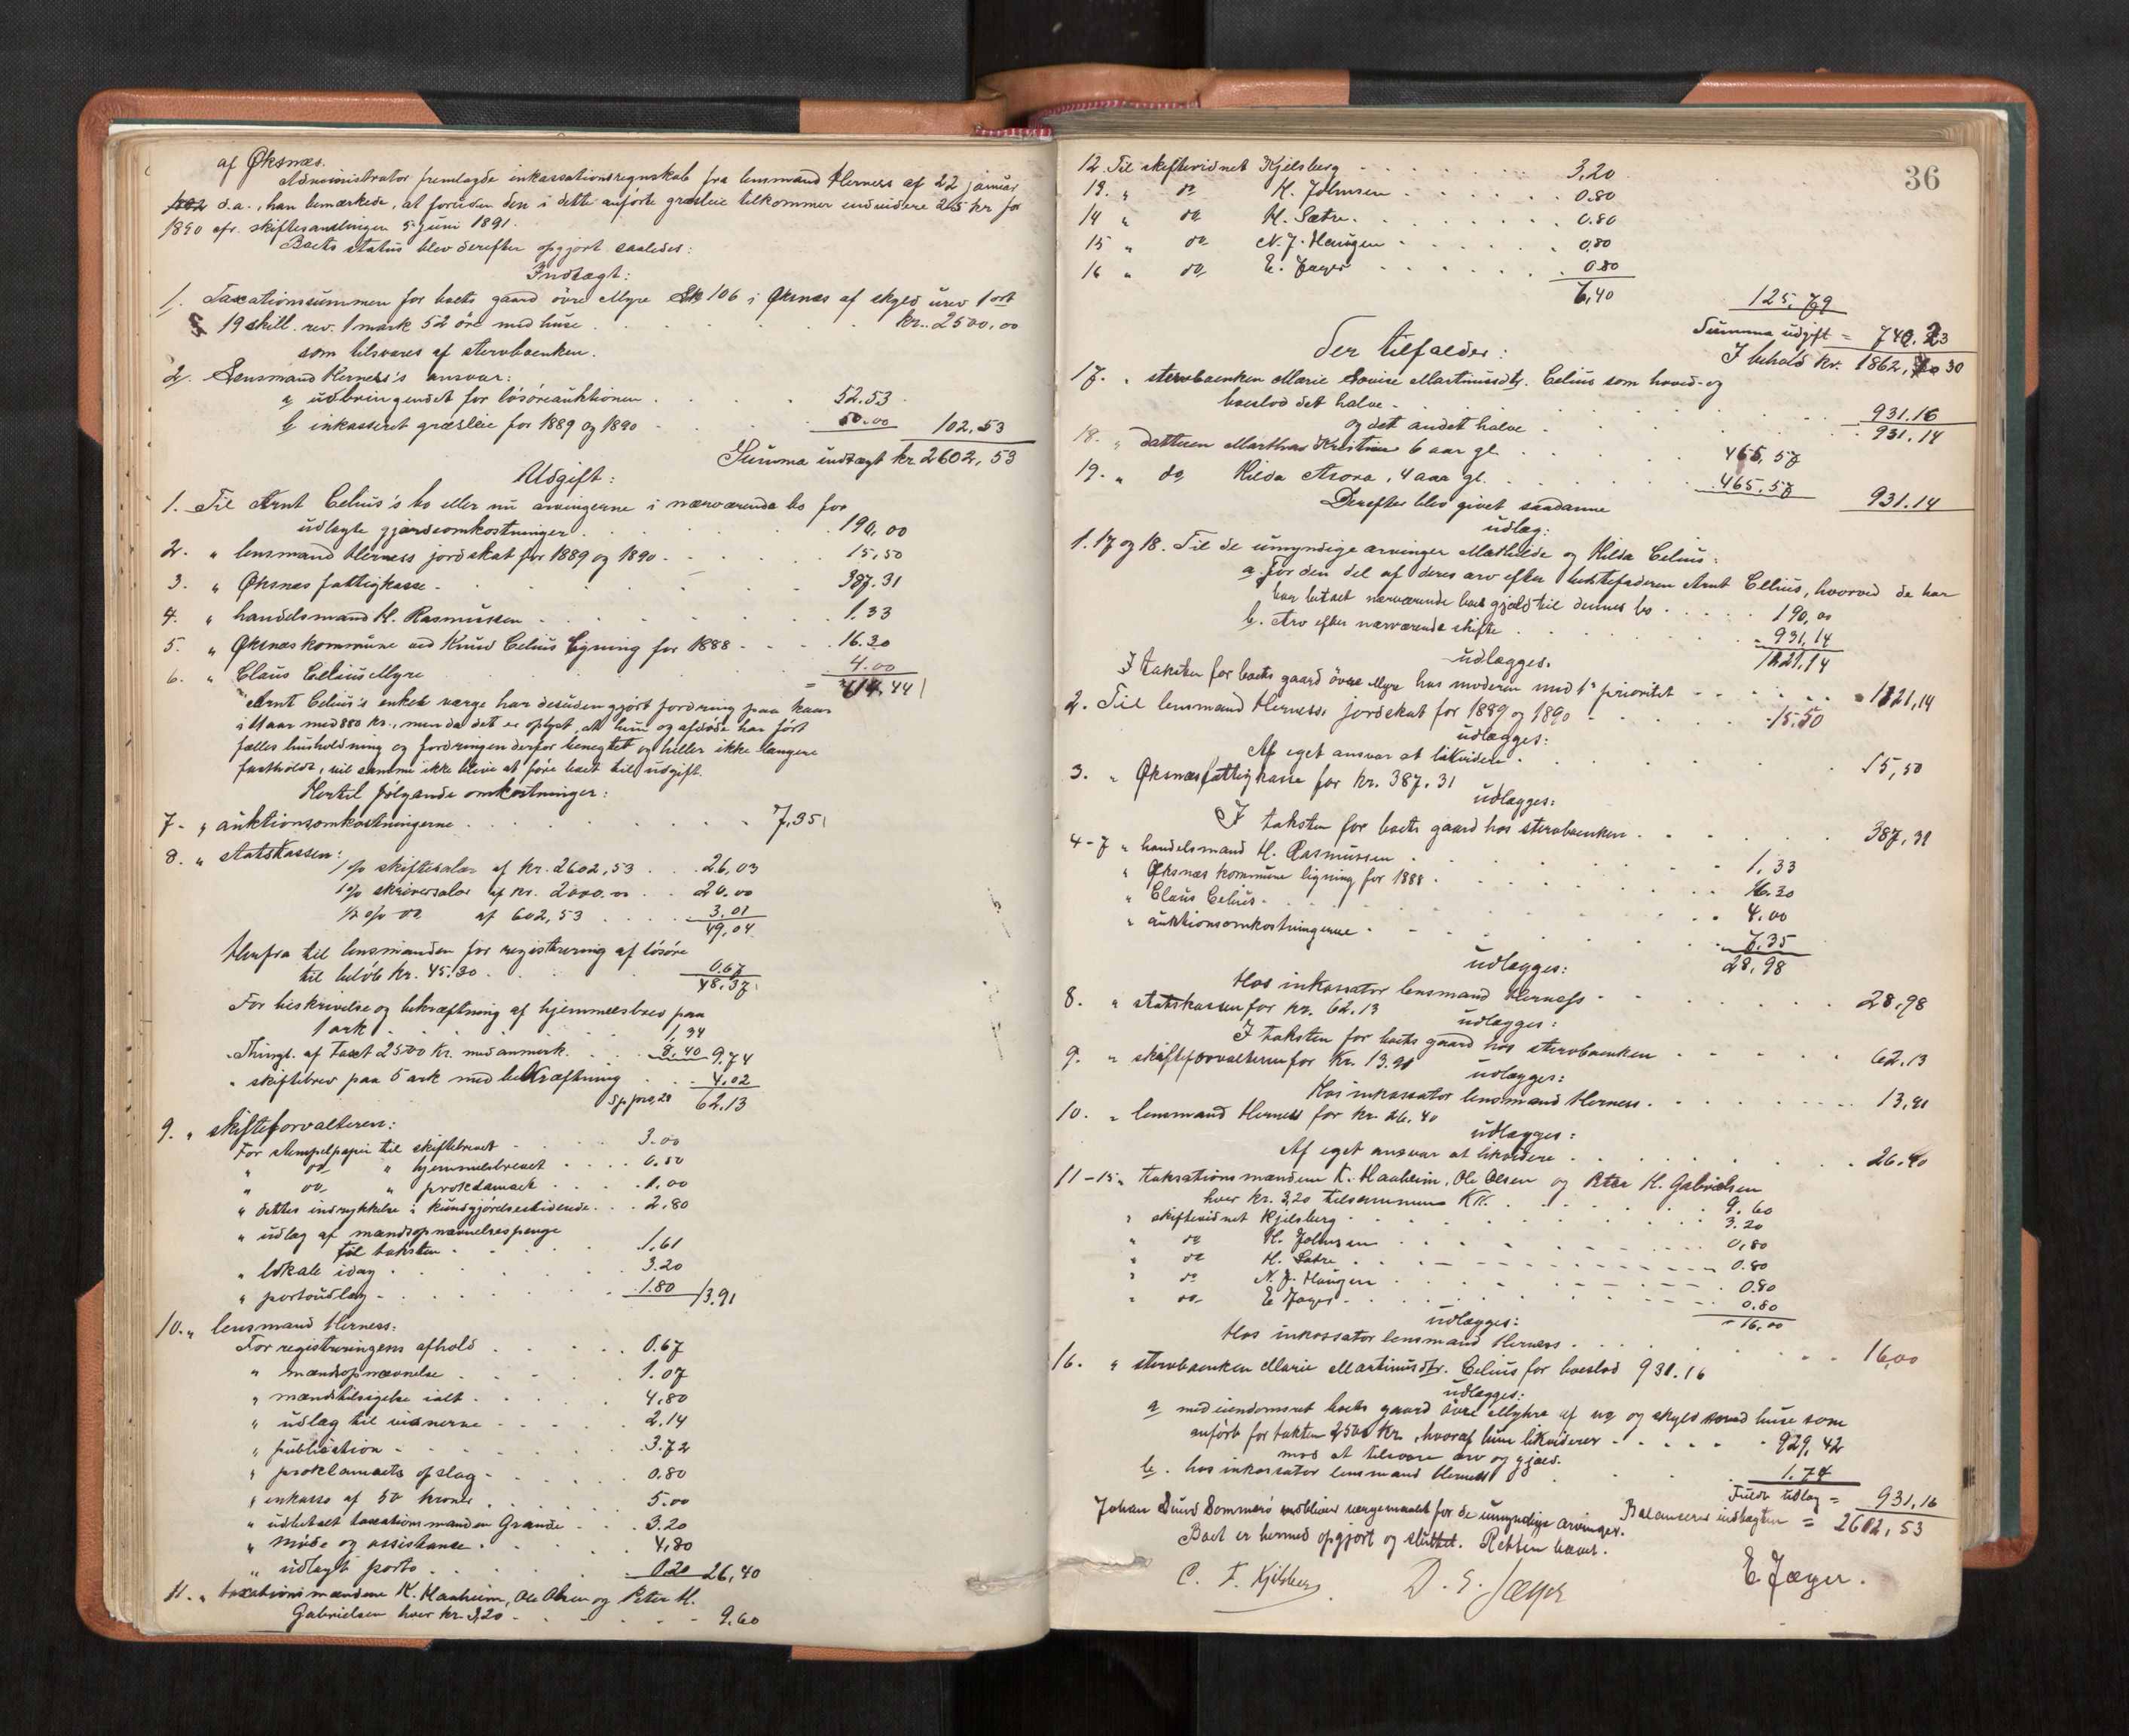 af Øksnæs.
Administrator fremlagde inkassationsregnskab fra lensmand Herness af 22 januar
d.a., han bemærkede, at foruden den i dette anförte græsleie tilkommer endvidere 25 kr for
1890 cfr. skiftesamlingen 5 juni 1891.
Boets status blev derefter opgjort saaledes:
Indtægt:
1. Taxationssummen for boets gaard övre Myre 106 i Øksnæs af skyld urev 1 ort
19 skill. rev. 1 mark 52 öre med huse . . . kr. 2500.00
som tilsvares af stervboenken.
2. Lensmand Herness's ansvar:
a udbringendet for lösöreauktionen . . . 52.53
b inkasseret græsleie for 1889 og 1890 . . . 50.00 102,53
Summa indtægt kr 2602,53
Udgift:
1. Til Arnt Celius's bo eller nu arvingerne i nærværende bo for
udlagte gjærdeomkostninger . . . 190,00
2. " lensmand Herness jordskat for 1889 og 1890 . . . 15,50
3. " Øksnæs fattigkasse . . . 387.31
4. " handelsmand H. Rasmussen . . . 1.33
5. " Øksnæs kommune ved Knud Celius ligning for 1888 . . . 16.30
6. " Claus Celius Myre . . . 4.00
= 614,44
Arnt Celius's enkes værge har desuden gjort fordring paa
i 11 aar med 880 kr., men da det er oplyst, at hun og afdöde har fört
fælles husholdning og fordringen derfor benegtet og heller ikke længere
fastholdt, vil samme ikke blive at före boet til udgift.
Hertil fölgende omkostninger:
7. " auktionsomkostningerne . . . 7,35
8. " statskassen:
1 o/o skiftesalær af kr. 2602,53 . . . 26,03
1 o/o skriversalær af kr. 2000.00 . . . 20.00
1/2 o/o do af 602,53 . . . 3,01
49,04
Herfra til lensmanden for registrering af lösöre
til belöb kr. 45.30 . . . 0.67
48.37
For beskrivelse og bekræftning af hjemmelsbrev paa
1 ark . . . 1,34
Thingl. af taxt 2500 kr. med anmerk. . . . 8,40 9.74
" skiftebrev paa 5 ark med bekræftning . . . 4.02
62.13
9. " skifteforvalteren:
For stempelpapir til skiftebrevet . . . 3.00
" do " hjemmelsbrevet . . . 0.50
" do " proklamaet . . . 1.00
" dettes indrykkelse i kundgjörelsestidende . . . 2.80
" udlæg af mandsopnævnelsespenge
til taksten . . . 1,61
" lokale idag . . . 3.20
" portoudlæg . . . 1.80 13.91
10. " lensmand Herness:
For registreringens afhold . . . 0.67
" mandsopnævnelse . . . 1.07
" mændstilsigelse ialt . . . 4,80
" udlæg til vidnerne . . . 2.14
" publikation . . . 3.72
" proklamaets opslag . . . 0.80
" inkasso af 50 kroner . . . 5.00
" udbetalt taxationsmanden Grande . . . 3.20
" möde og assistanse . . . 4,80
" udlagt porto . . . 0.20 26,40
11. " taxationsmændene K. Haaheim, Ole Olsen og Peter H.
Gabrielsen hver kr. 3,20 . . . 9.60
36
12. Til skiftevidnet Kjelsberg . . . 3,20
13. " do H. Johnsen . . . 0.80
14 " do H. Sætre . . . 0.80
15 " do N. J. Haugen . . . 0.80
16 " do E. Jæger . . . 0.80
6,40 125,79
Summa udgift = 740.23
I behold kr. 1862,30
Der tilfalder:
17. " stervboenken Marie Lovise Martinusdtr. Celius som hoved- og
boeslod det halve . . . 931.16
og det andet halve . . . 931.14
18. " datteren Kristine 6 aar gl . . . 465,57
19. " do Hilda Arora, 4 aar gl. . . . 465.57 931.14
Derefter blev givet saadanne
udlæg:
1. 17 og 18. Til de umyndige arvinger Mathilde og Hilda Celius:
a. for den del af deres arv efter bedstefaderen Arnt Celius, hvorved de har
betalt nærværende boes gjæld til dennes bo . . . 190,00
b. Arv efter nærværende skifte . . . 931,14
1121,14
udlægges.
I taksten for boets gaard övre Myre hos moderen med 1ste prioritet . . . 1121,14
2. Til lensmand Herness jordskat for 1889 og 1890 . . . 15.50
udlægges:
Af eget ansvar at likvidere . . . 15,50
3. " Øksnæs fattigkasse for kr. 387.31
udlægges:
I taksten for boets gaard hos stervboenken . . . 387,31
4-7 " handelsmand H. Rasmussen . . . 1.33
" Øksnæs kommune ligning for 1888 . . . 16.30
" Claus Celius . . . 4.00
" auktionsomkostningerne . . . 7.35
28,98
udlægges:
Hos inkassator lensmand Herness . . . 28,98
8. " statskassen for kr. 62.13
udlægges:
I taksten for boets gaard hos stervboenken . . . 62.13
9. " skifteforvalteren for kr. 13.91
udlægges:
Hos inkassator lensmand Herness . . . 13,91
10. " lensmand Herness for kr. 26.40
udlægges:
Af eget ansvar at likvidere . . . 26.40
11-15 " taksationsmændene K. Haaheim, Ole Olsen og Peter H. Gabrielsen
hver kr. 3,20 tilsammen Kr. . . . 9.60
" skiftevidnet Kjelsberg . . . 3.20
" do H. Johnsen . . . 0,80
" do H. Sætre . . . 0.80
" do N. J. Haugen . . . 0.80
" do E Jæger . . . 0.80
16,00
udlægges:
Hos inkassator lensmand Herness . . . 16,00
16. " stervboenken Marie Martinusdtr. Celius for boeslod 931.16
udlægges:
a med eiendomsret boets gaard övre Myhre af no og skyld med huse som
anfört for taksten 2500 kr., hvoraf hun likviderer . . . 929,42
mod at tilsvare arv og gjæld.
b. hos inkassator lensmand Herness . . . 1.74
Fuldt udlæg = 931,16
Balancerer indtægten = 2602,53
Johan Lund Sommerö vedbliver værgemaalet for de umyndige arvinger.
Boet er hermed opgjort og sluttet. Retten hævet.
C. F. Kjelsberg D. E. Jæger E Jæger.